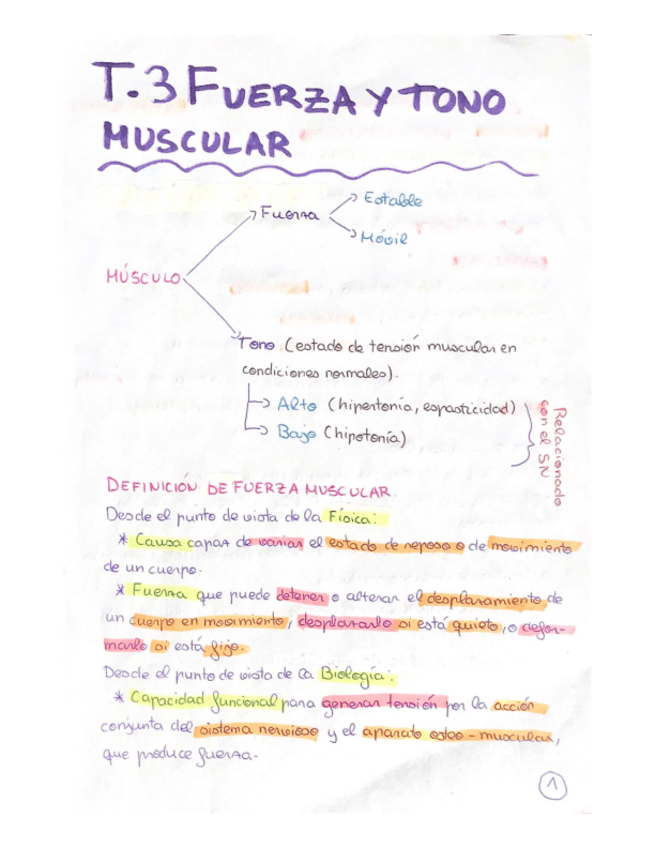 T.3 FUERZA Y TONO
MUSCULAR
MÚSCULO
Fuerza
Estable
Móvil
Tono (estado de tensión muscular en
condiciones normales).
Alto (hipertonía, espasticidad)
Bajo (hipotonía)
Relacionado
con el SN
DEFINICIÓN DE FUERZA MUSCULAR.
Desde el punto de vista de la Física:
* Causa capaz de variar el estado de reposo o de movimiento
de un cuerpo.
* Fuerza que puede detener o alterar el desplazamiento de
un cuerpo en movimiento, desplazarlo si está quieto, o defor-
marlo si está fijo.
Desde el punto de vista de la Biología:
* Capacidad funcional para generar tensión por la acción
conjunta del sistema nervioso y el aparato osteo-muscular,
que produce fuerza.
1